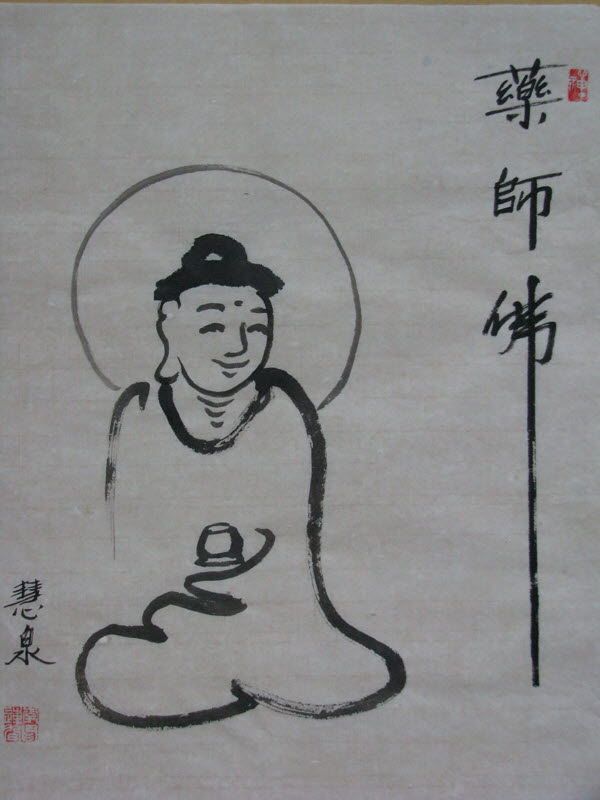 藥師佛
慧泉